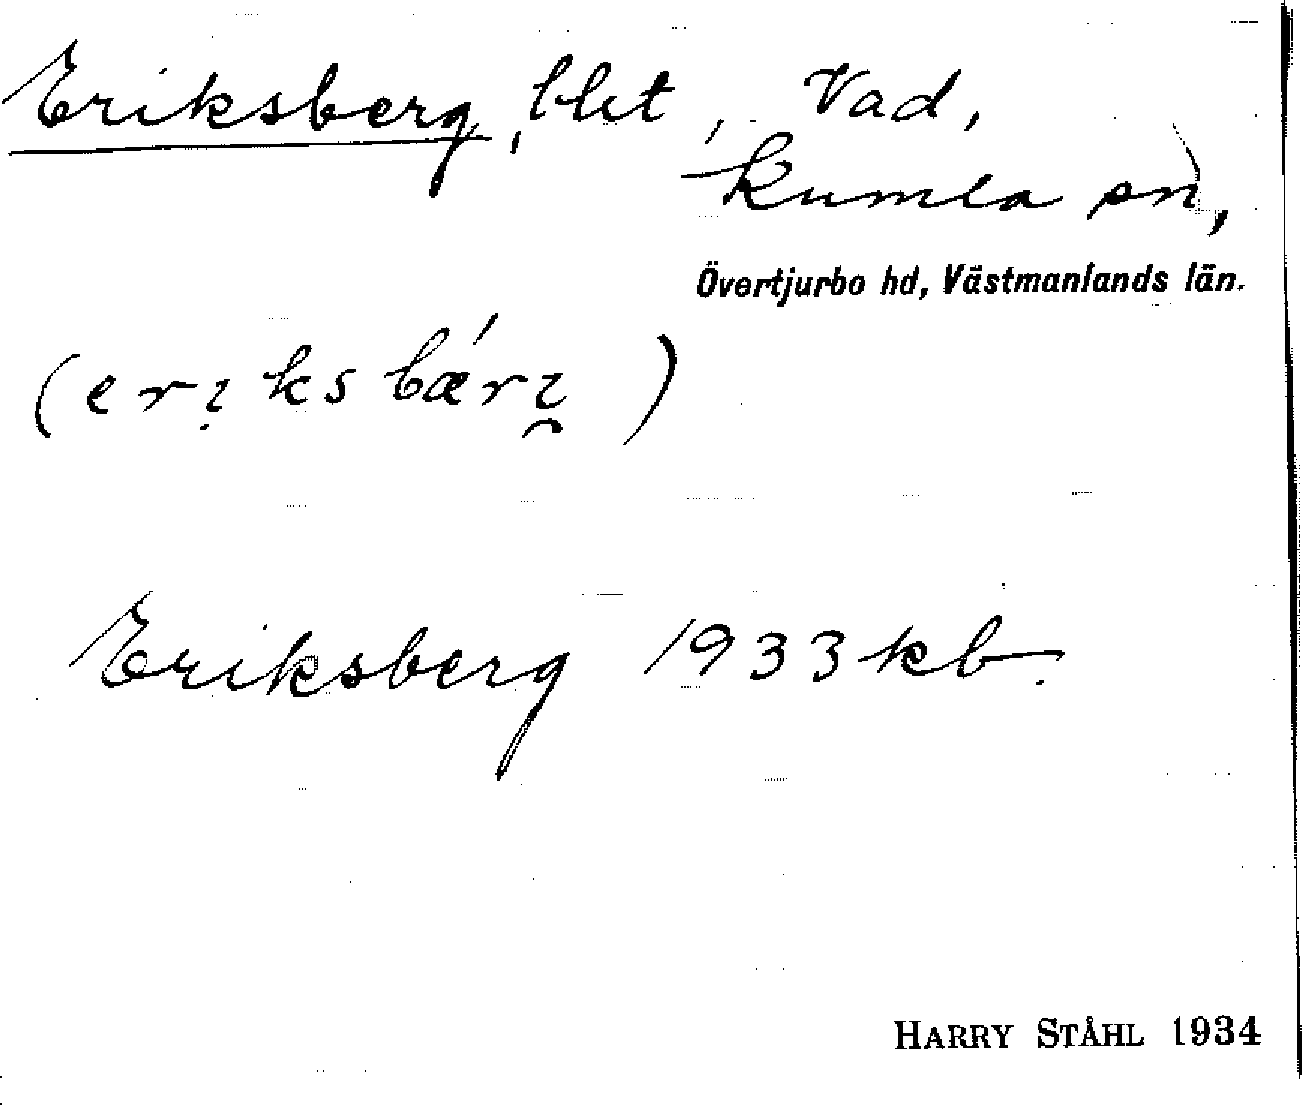 Eriksberg, lht, Vad,
Kumla sn,
Övertjurbo hd, Västmanlands län.
(erịksbǽri̯)
Eriksberg 1933 kb.
HARRY STÅHL 1934